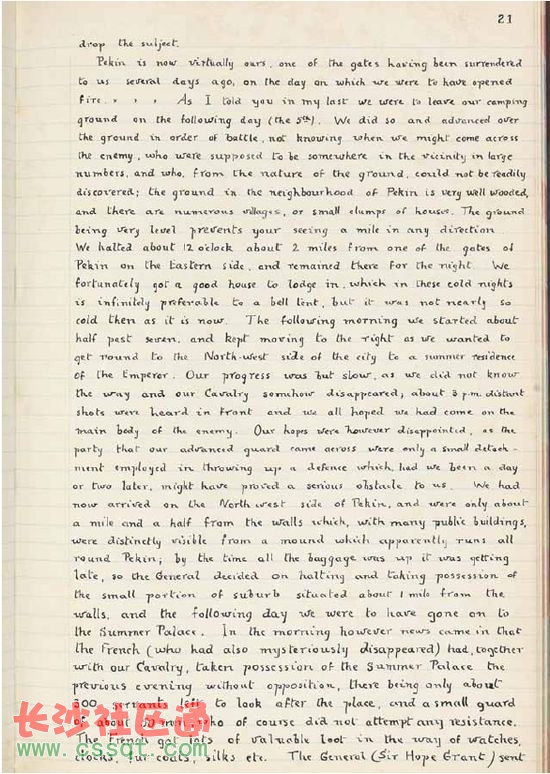 21
drop the subject.
Pekin is now virtually ours, one of the gates having been surrendered
to us several days ago, on the day on which we were to have opened
fire. , , , As I told you in my last we were to leave our camping
ground on the following day (the 5th). We did so and advanced over
the ground in order of battle, not knowing when we might come across
the enemy, who were supposed to be somewhere in the vicinity in large
numbers, and who, from the nature of the ground, could not be readily
discovered; the ground in the neighbourhood of Pekin is very well wooded,
and there are numerous villages, or small clumps of houses. The ground
being very level prevents your seeing a mile in any direction
We halted about 12 o'clock about 2 miles from one of the gates of
Pekin on the Eastern side, and remained there for the night. We
fortunately got a good house to lodge in, which in these cold nights
is infinitely preferable to a bell tent, but it was not nearly so
cold then as it is now. The following morning we started about
half past seven, and kept moving to the right as we wanted to
get round to the North-west side of the city to a summer residence
of the Emperor. Our progress was but slow, as we did not know
the way and our Cavalry somehow disappeared; about 3 p.m. distant
shots were heard in front and we all hoped we had come on the
main body of the enemy. Our hopes were however disappointed, as the
party that our advanced guard came across were only a small detach-
ment employed in throwing up a defence which, had we been a day
or two later, might have proved a serious obstacle to us. We had
now arrived on the North west side of Pekin, and were only about
a mile and a half from the walls which, with many public buildings,
were distinctly visible from a mound which apparently runs all
round Pekin; by the time all the baggage was up it was getting
late, so the General decided on halting and taking possession of
the small portion of suburb situated about 1 mile from the
walls, and the following day we were to have gone on to
the Summer Palace. In the morning however news came in that
the French (who had also mysteriously disappeared) had, together
with our Cavalry, taken possession of the Summer Palace the
previous evening without opposition, there being only about
300 servants left to look after the place, and a small guard
of about 50 men who of course did not attempt any resistance.
The French got lots of valuable loot in the way of watches,
clocks, fur-coats, silks etc. The General (Sir Hope Grant) sent
长沙社区通
www.cssqt.com